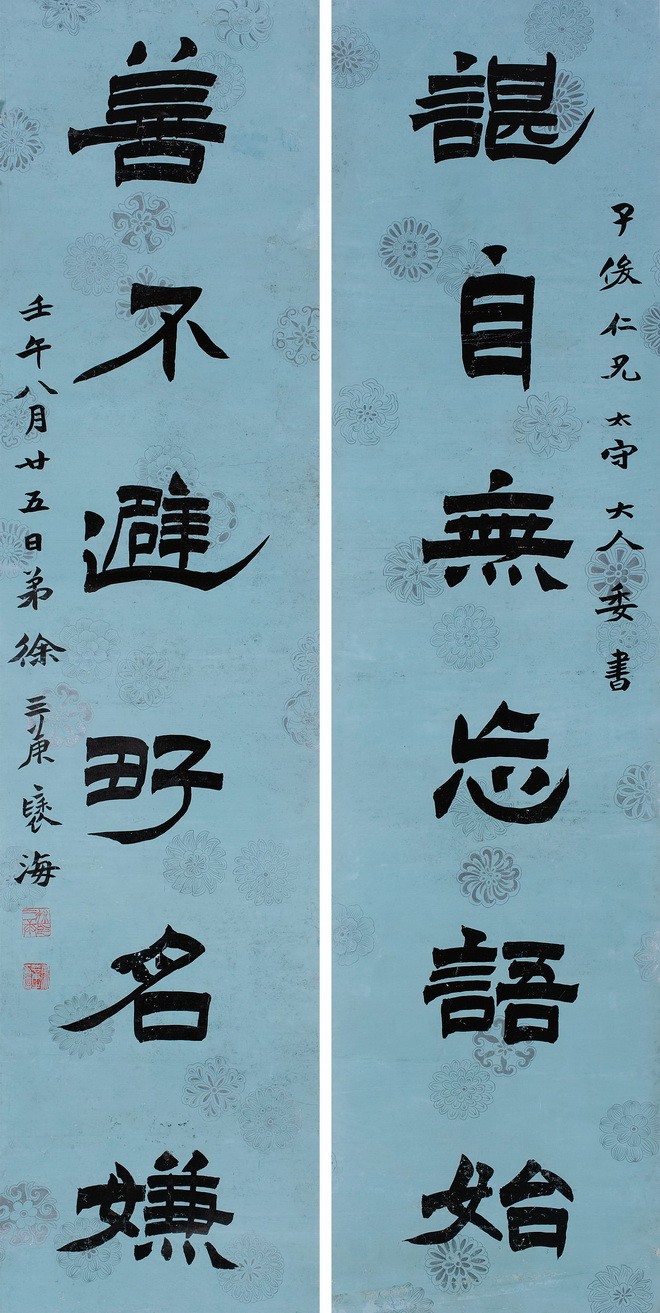 子俊仁兄太守大人委書
諶自無忘語始
善不避好名嫌
壬午八月廿五日弟徐三庚褎海